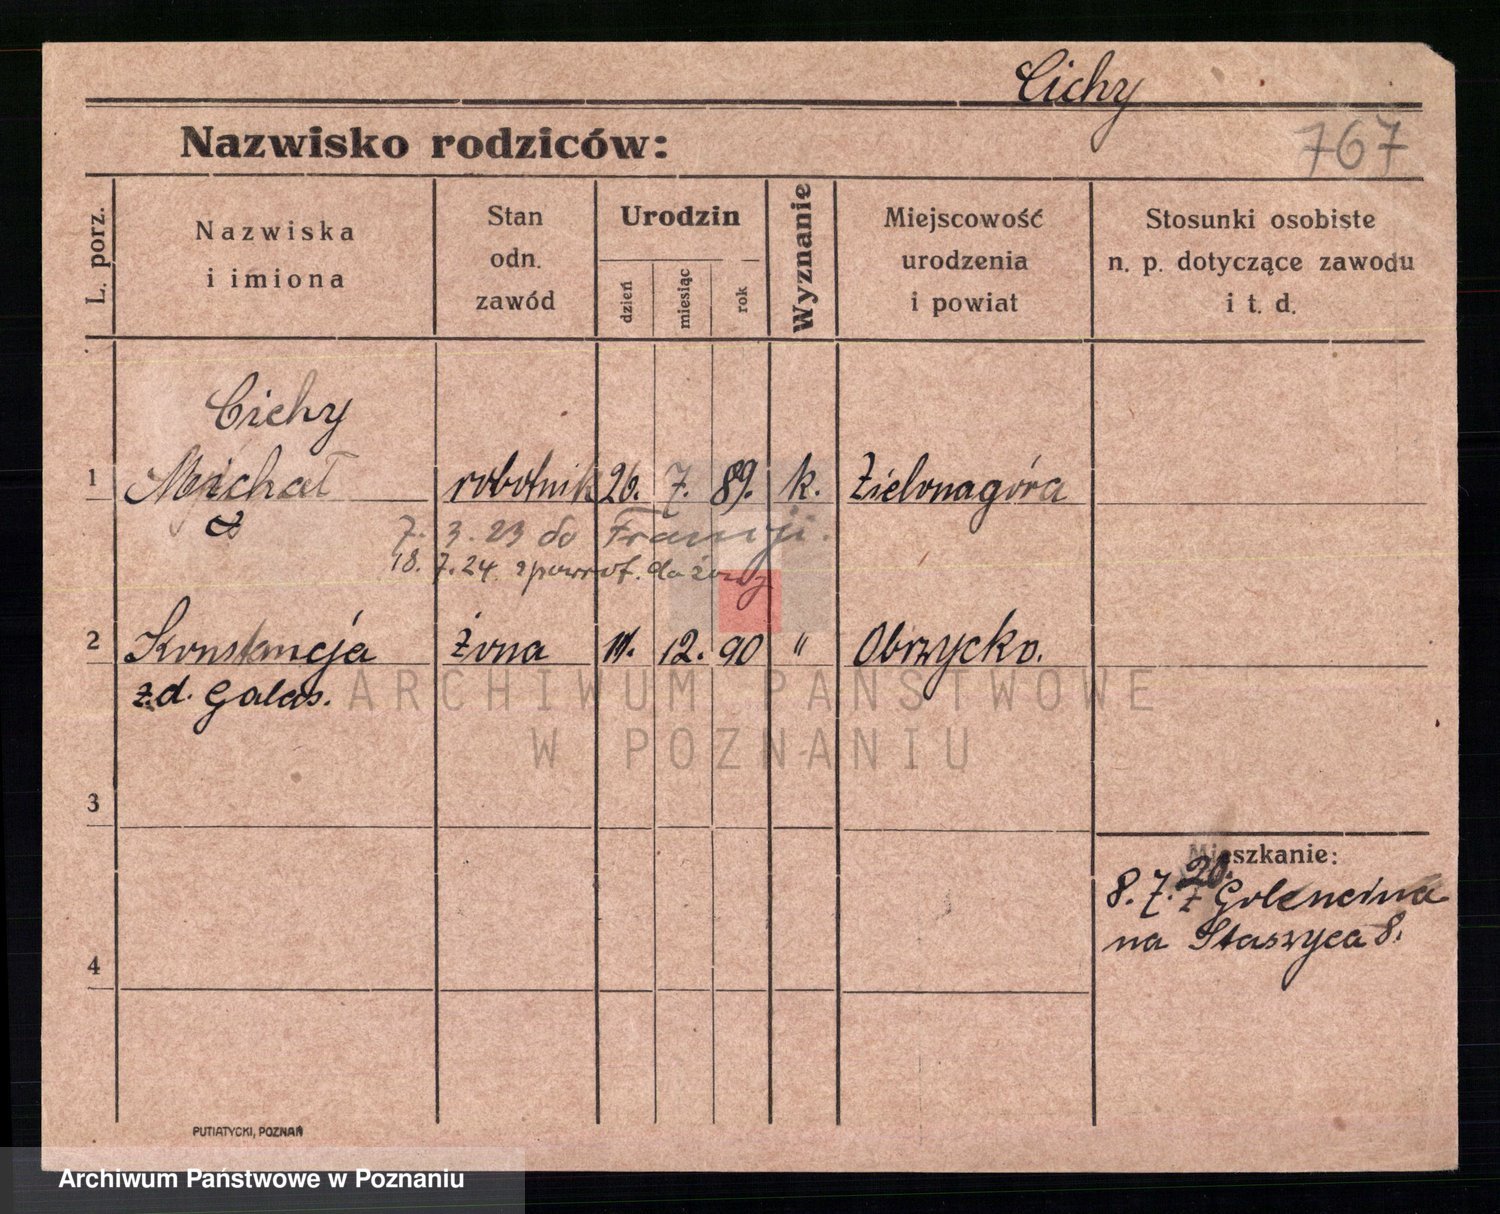 Cichy
Nazwisko rodziców:
767
L. porz.
Nazwiska
i imiona
Stan
odn.
zawód
Urodzin
dzień
miesiąc
rok
Wyznanie
Miejscowość
urodzenia
i powiat
Stosunki osobiste
n. p. dotyczące zawodu
i t. d.
Cichy
1 Michał robotnik 26. 7. 89. k. Zielonagóra
7. 3. 23 do Francji.
18. 7. 24. zpowrot. do żony
2 Konstancja żona 11. 12. 90 " Obrzycko.
z.d. Galas.
ARCHIWUM PAŃSTWOWE
W POZNANIU
3
Mieszkanie:
8. 7. 20. z Golencina
na Staszyca 8.
4
PUTIATYCKI, POZNAŃ
Archiwum Państwowe w Poznaniu